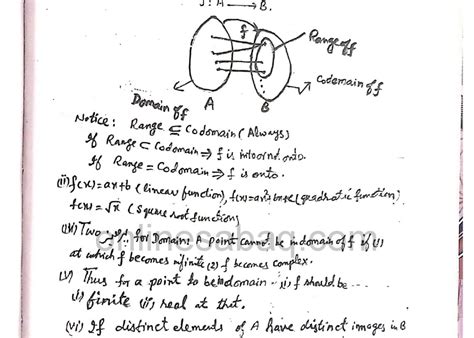 f: A → B.
f
Range of f
Codomain of f
Domain of f
A
B
Notice: Range ⊆ Codomain (Always)
If Range ⊂ Codomain ⇒ f is into or not onto.
If Range = Codomain ⇒ f is onto.
(ii) f(x) = ax+b (linear function), f(x) = ax²+bx+c (quadratic function)
f(x) = √x (Square root function)
Two for Domains A point cannot be in domain of f if (1)
at which f becomes infinite (2) f becomes complex.
onlinesabaq.com
(v) Thus for a point to be in domain (i) f should be
finite (ii) real at that.
(vi) If distinct elements of A have distinct images in B